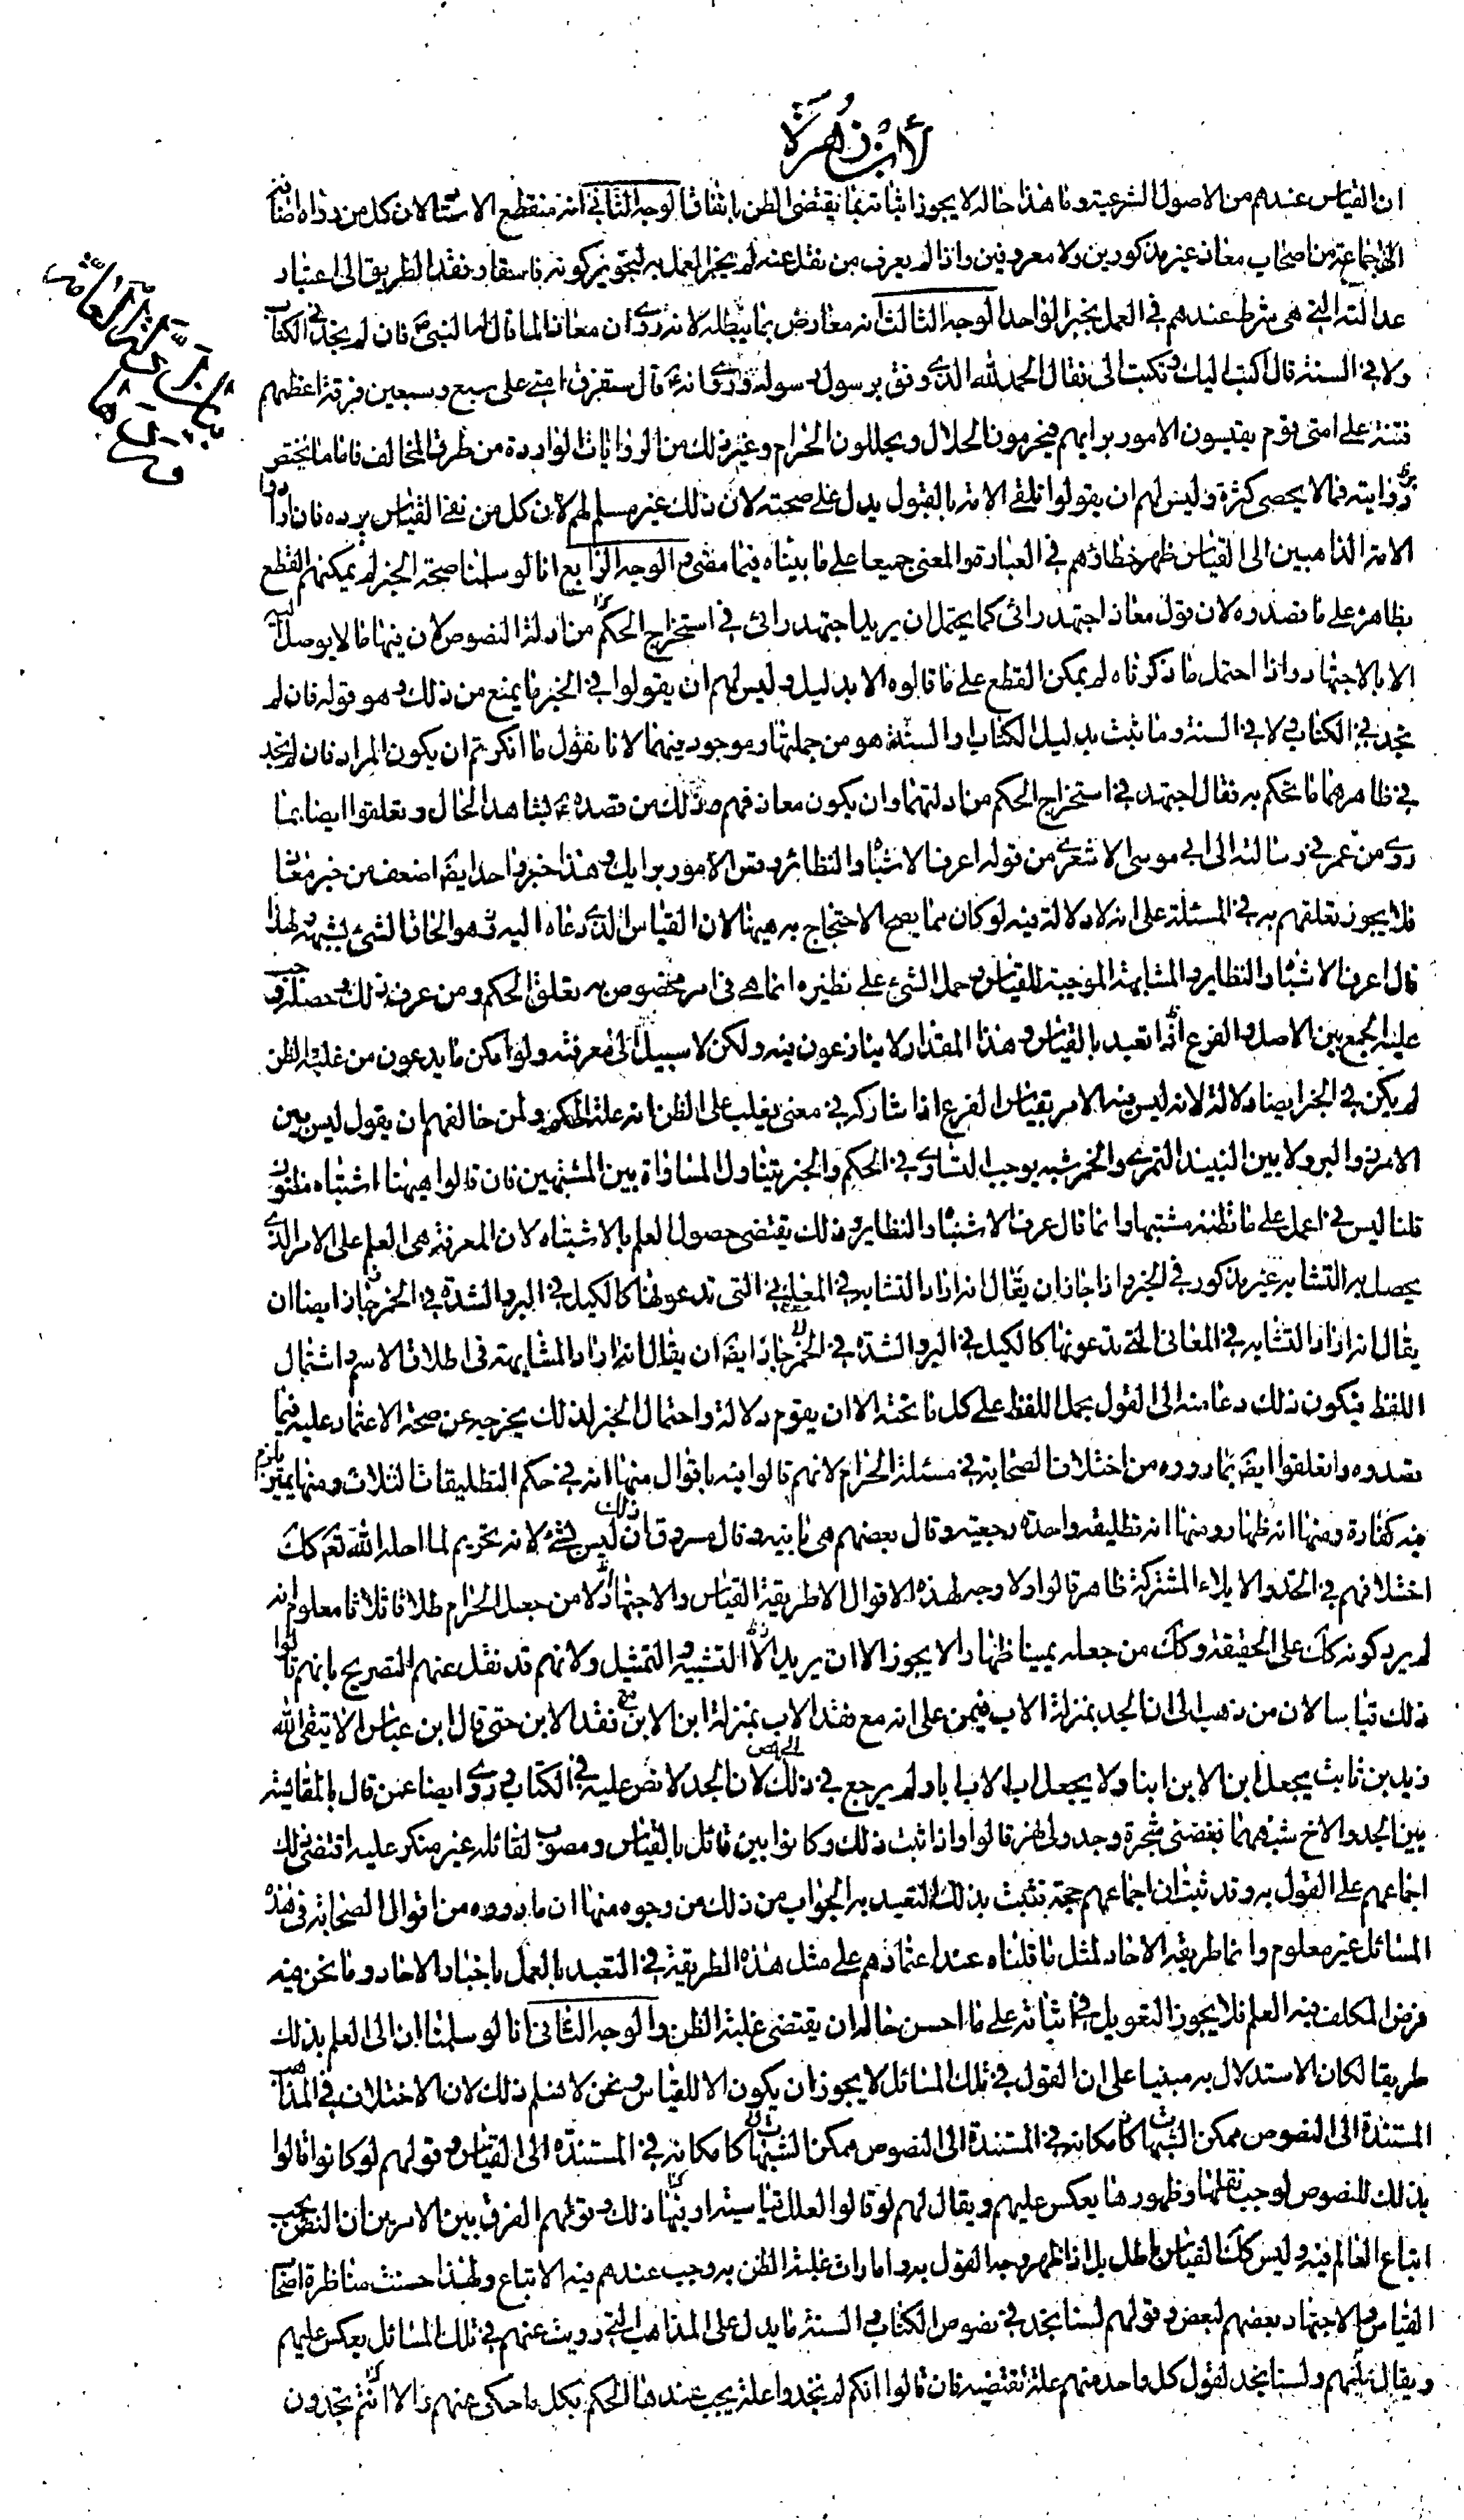 لابن زهرة
ان القياس عندهم من الاصول الشرعية وما هذا حاله لا يجوز اثباته بما يقتضى الظن باتفاق الوجه الثانى انه منقطع الاسناد لان كل من رواه اضافه
الى جماعة من اصحاب معاذ غير مذكورين ولا معروفين واذا لم يعرف من نقل عنه لم يجز العمل به لتجويز كونه فاسقا وفقد الطريق الى اعتبار
عدالته التى هى شرط عندهم فى العمل بخبر الواحد الوجه الثالث انه معارض بما يبطله لانه روى ان معاذا لما قال له النبى ص فان لم تجد فى الكتاب
ولا فى السنة قال اكتب اليك وتكتب الى فقال الحمد لله الذى وفق رسول رسوله وروى انه ع قال ستفترق امتى على سبع وسبعين فرقة اعظمهم
فتنة على امتى قوم يقيسون الامور برايهم فيحرمون الحلال ويحللون الحرام وغير ذلك من الروايات الواردة من طرق المخالف فاما ما نختص
نحن بروايته فما لا يحصى كثرة وليس لهم ان يقولوا تلقى الامة بالقبول يدل على صحته لان ذلك غير مسلم لهم لان كل من نفى القياس يرده فان ارادوا
الامة الذاهبين الى القياس ظهر خطاؤهم فى العبارة والمعنى جميعا على ما بيناه فيما مضى والوجه الرابع انا لو سلمنا صحة الخبر لم يمكنهم القطع
بظاهره على ما قصدوه لان قول معاذ اجتهد رائى كما يحتمل ان يريد اجتهد رائى فى استخراج الحكم من ادلة النصوص لان فيها ما لا يوصل اليه
الا بالاجتهاد واذا احتمل ما ذكرناه لم يمكن القطع على ما قالوه الا بدليل وليس لهم ان يقولوا فى الخبر ما يمنع من ذلك وهو قوله فان لم
تجد فى الكتاب ولا فى السنة وما ثبت بدليل الكتاب او السنة هو من جملتها وموجود فيهما لانا نقول ما انكرتم ان يكون المراد فان لم تجد
فى ظاهرهما ما تحكم به فقال اجتهد فى استخراج الحكم من ادلتهما وان يكون معاذ فهم ذلك من قصده ع بشاهد الحال وتعلقوا ايضا بما
روى من عمر فى رسالته الى ابى موسى الاشعرى من قوله اعرف الاشباه والنظائر وقس الامور برايك وهذا خبر واحد ايضا اضعف من خبر معاذ
فلا يجوز تعلقهم به فى المسئلة على انه لا دلالة فيه لو كان مما يصح الاحتجاج به هيهنا لان القياس الذى دعاه اليه هو الحاق الشئ بشبهه لهذا
قال اعرف الاشباه والنظاير والمشابهة الموجبة للقياس وحمل الشئ على نظيره انما هى فى امر مخصوص به تعلق الحكم ومن عرف ذلك وحصله وجب
عليه الجمع بين الاصل والفرع اذا تعبد بالقياس وهذا المقدار لا ينازعون فيه ولكن لا سبيل الى معرفته ولو امكن ما يدعون من غلبة الظن
لم يكن فى الخبر ايضا دلالة لانه ليس فيه الامر بقياس الفرع اذا شاركه فى معنى يغلب على الظن انه علة الحكم ولمن خالفهم ان يقول ليس بين
الارز والبر ولا بين النبيذ التمرى والخمر شبه يوجب التساوى فى الحكم والخبر يتناول المساواة بين المشتبهين فان قالوا هيهنا اشتباه مظنون
قلنا ليس فى اعمل على ما تظنه مشتبها وانما قال اعرف الاشباه والنظاير وذلك يقتضى حصول العلم بالاشتباه لان المعرفة هى العلم على الامر الذى
يحصل به التشابه غير مذكور فى الخبر واذا جاز ان يقال انه اراد التشابه فى المعانى التى تدعونها كالكيل فى البر والشدة فى الخمر جاز ايضا ان
يقال انه اراد التشابه فى المعانى التى تدعونها كالكيل فى البر والشدة فى الخمر جاز ايضا ان يقال انه اراد المشابهة فى اطلاق الاسم واشتمال
اللفظ فيكون ذلك دعا منه الى القول بحمل اللفظ على كل ما تحته الا ان يقوم دلالة واحتمال الخبر لذلك يخرجه عن صحة الاعتماد عليه فيما
قصدوه وتعلقوا ايضا بما رووه من اختلاف الصحابة فى مسئلة الحرام لانهم قالوا فيه باقوال منها انه فى حكم التطليقات الثلاث ومنها يمين يلزم
فيه كفارة ومنها انه ظهار ومنها انه تطليقة واحدة رجعية وقال بعضهم هى بائنة وقال مسروق ان ذلك ليس بشئ لانه تحريم لما احله الله تعالى كك
اختلافهم فى الجد والايلاء المشتركة ظاهر قالوا ولا وجه لهذه الاقوال الا طريقة القياس والاجتهاد لان من جعل الحرام طلاقا ثلاثا معلوم انه
لم يرد كونه كك على الحقيقة وكك من جعله يمينا وظهارا لا يجوز الا ان يريد التشبيه والتمثيل ولانهم قد نقل عنهم التصريح بانهم قالوا
ذلك قياسا لان من ذهب الى ان الجد بمنزلة الاب فيمن على انه مع فقد الاب بمنزلة ابن الابن مع فقد الابن حتى قال ابن عباس الا يتقى الله
زيد بن ثابت يجعل ابن الابن ابنا ولا يجعل اب الاب ابا ولم يرجع فى ذلك الى نص لان الجد لا نص عليه فى الكتاب وروى ايضا عمن قال بالمقايسة
بين الجد والاخ شبههما بغصنى شجرة وجدولى نهر قالوا واذا ثبت ذلك وكانوا بين قائل بالقياس ومصوب لقائله غير منكر عليه اقتضى ذلك
اجماعهم على القول به وقد ثبت ان اجماعهم حجة فثبت بذلك التعبد به الجواب من ذلك من وجوه منها ان ما رووه من اقوال الصحابة فى هذه
المسائل غير معلوم وانما طريقه الاحاد لمثل ما قلناه عند اعتمادهم على مثل هذه الطريقة فى التعبد بالعمل باخبار الاحاد وما نحن فيه
فرض المكلف فيه العلم فلا يجوز التعويل فى اثباته على ما احسن حاله ان يقتضى غلبة الظن والوجه الثانى انا لو سلمنا ان الى العلم بذلك
طريقا لكان الاستدلال به مبنيا على ان القول فى تلك المسائل لا يجوز ان يكون الا للقياس ونحن لا نسلم ذلك لان الاختلاف فى المذاهب
المستندة الى النصوص ممكن للشبهات كامكانه فى المستندة الى النصوص ممكن للشبهات كامكانه فى المستندة الى القياس وقولهم لو كانوا قالوا
بذلك للنصوص لوجب نقلها وظهورها يعكس عليهم ويقال لهم لو قالوا العلل قياسية ذلك وقولهم الفرق بين الامرين ان النص يجب
اتباع العالم فيه وليس كك القياس باطل بل اذا ظهر وجه القول به وامارات غلبة الظن به وجب عندهم فيه الاتباع ولهذا حسنت مناظرة اصحاب
القياس والاجتهاد بعضهم لبعض وقولهم لسنا نجد فى نصوص الكتاب والسنة ما يدل على المذاهب التى رويت عنهم فى تلك المسائل يعكس عليهم
ويقال لهم ولسنا نجد لقول كل واحد منهم علة تقتضيه فان قالوا انكم لم تجدوا علة يجب عندها الحكم بكل ما حكى عنهم والا انتم تجدون